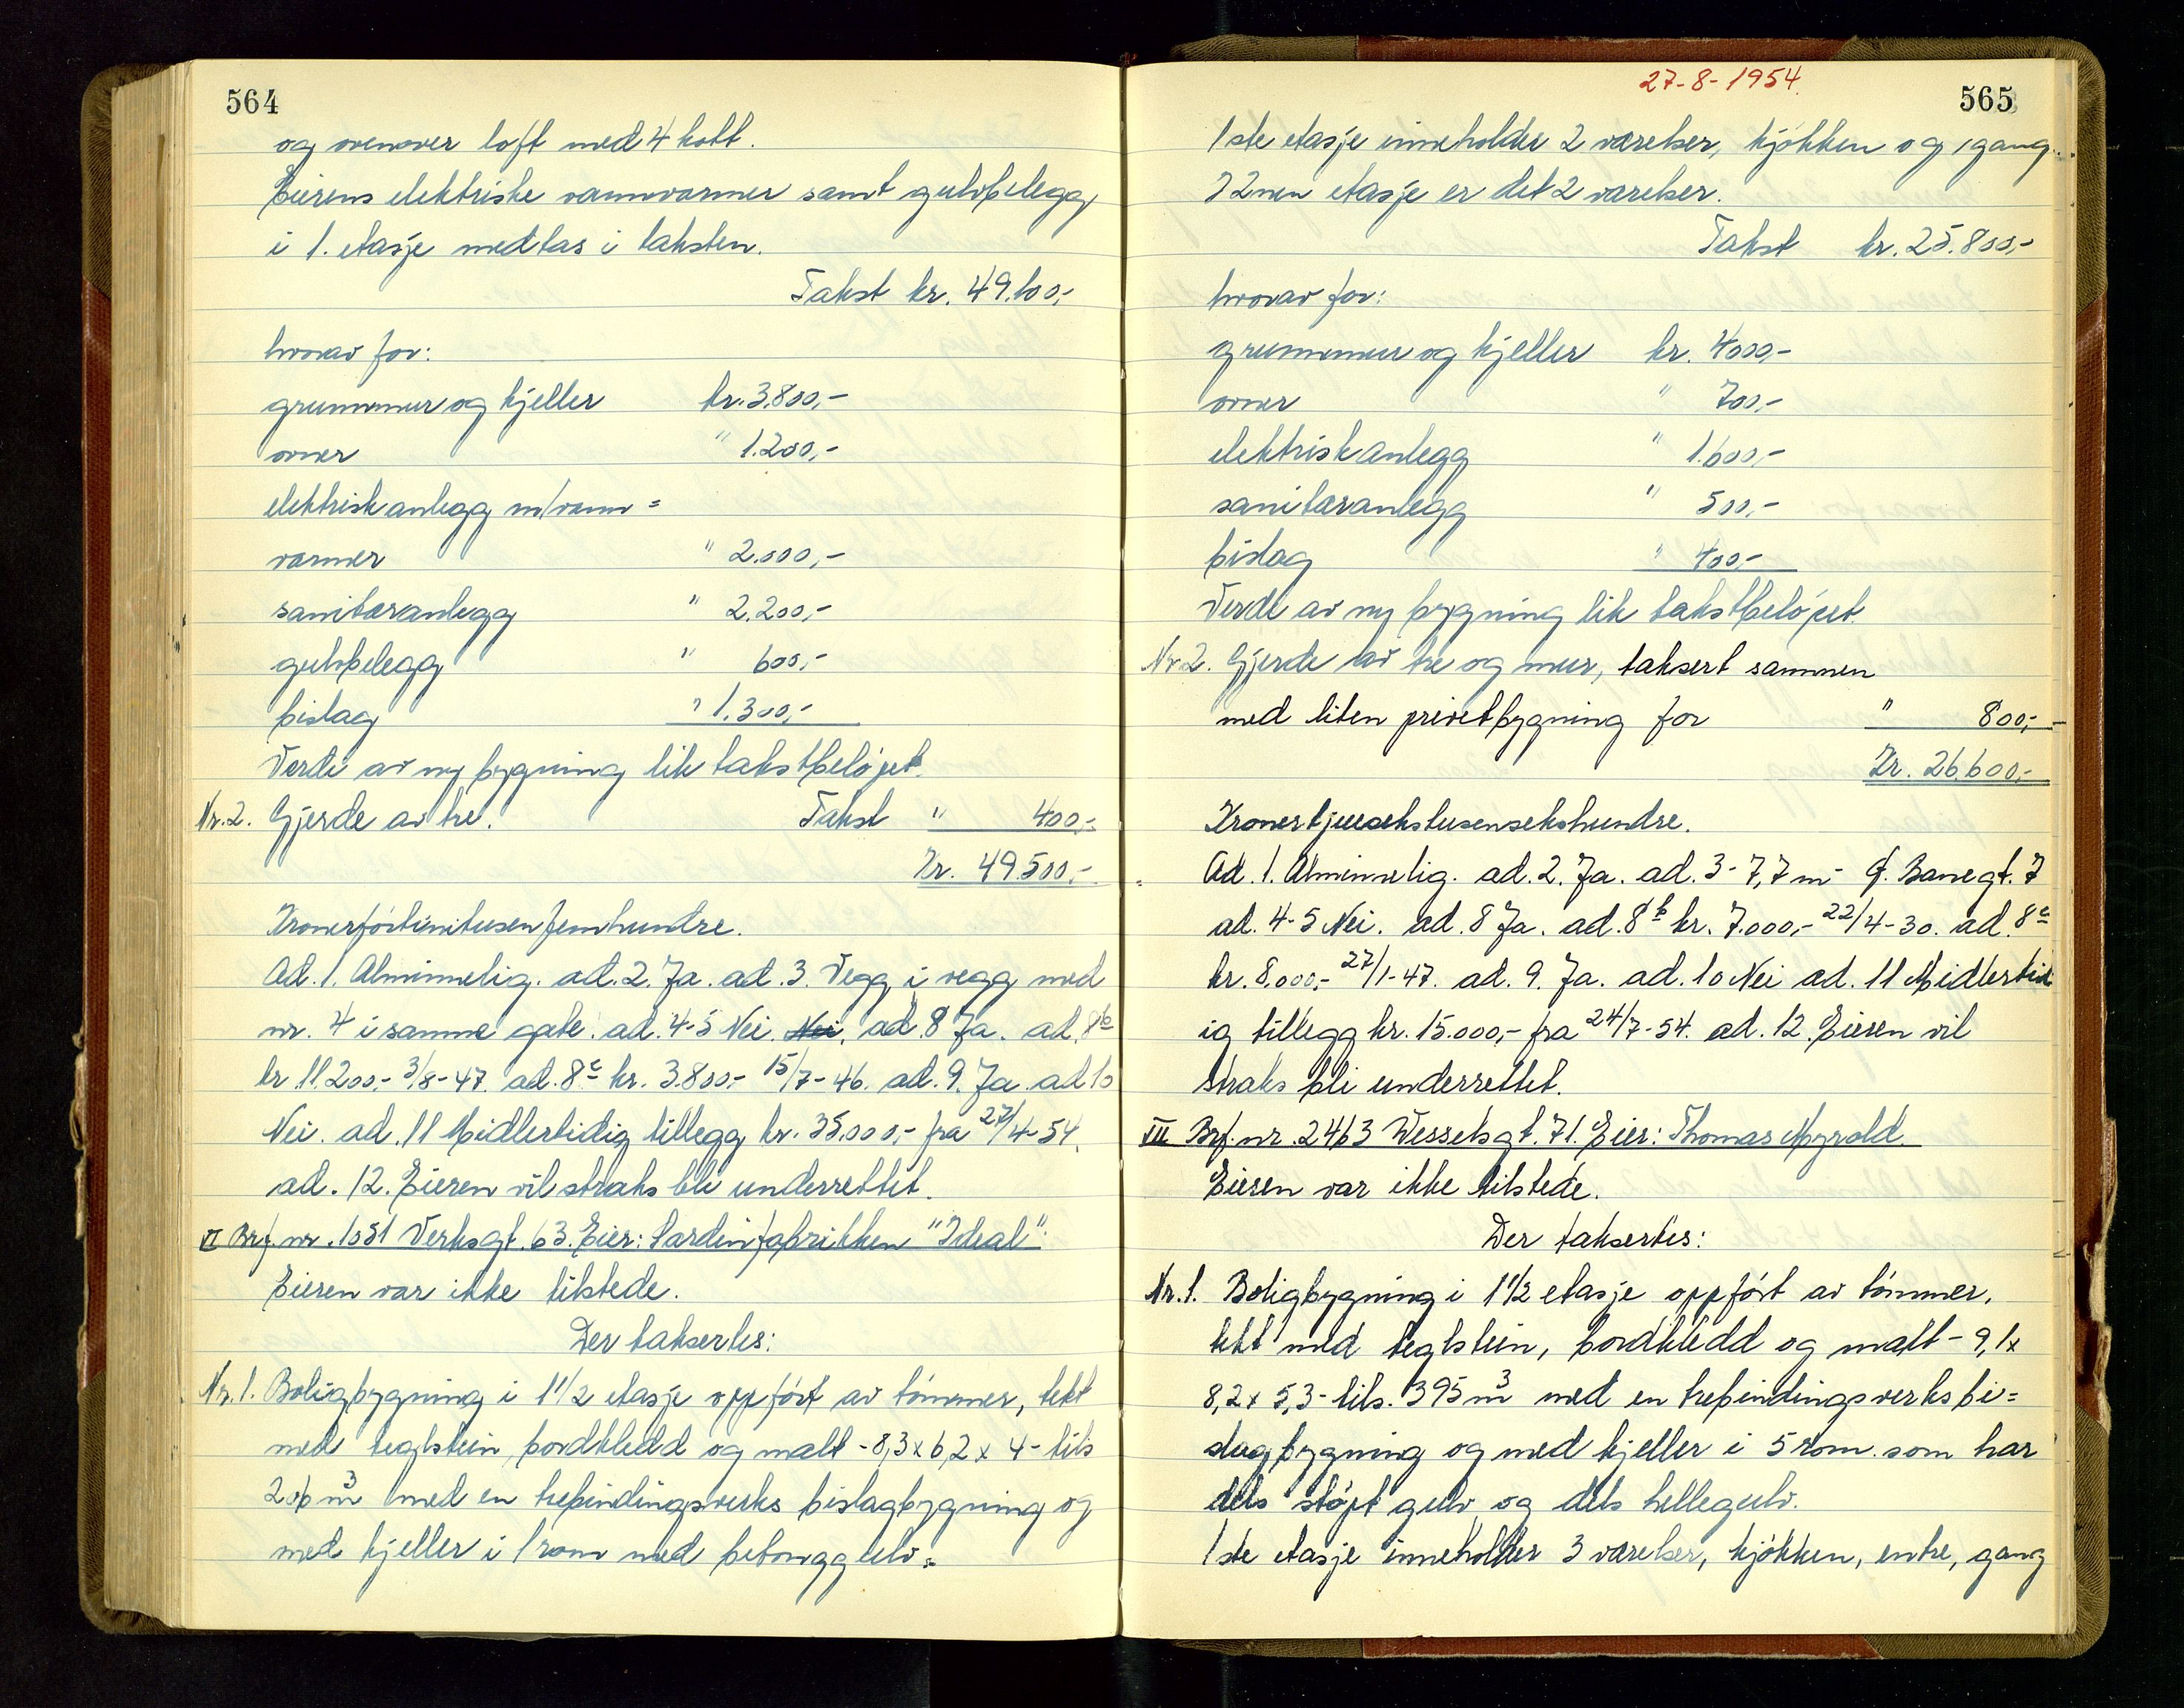 564
og ovenover loft med 4 kott.
Eierens elektriske vannvarmer samt gulvbelegg
i 1. etasje medtas i taksten.
Takst kr. 49.100,-
hvorav for:
grunnmur og kjeller kr. 3.800,-
ovner " 1.200,-
elektrisk anlegg m/vann=
varmer " 2.000,-
sanitæranlegg " 2.200,-
gulvbelegg " 600,-
bislag " 1.300,-
Verdi av ny bygning lik takstbeløpet.
Nr. 2. Gjerde av tre. Takst " 400,-
Kr. 49.500,-
Kronerførtinitusenfemhundre.
Ad. 1. Alminnelig. ad. 2. Ja. ad. 3. Vegg i vegg med
nr. 4 i samme gate. ad. 4-5 Nei. Nei. ad. 8 Ja. ad. 8b
kr 11.200,- 3/8-47. ad. 8c kr. 3.800,- 15/7-46. ad. 9. Ja. ad 10
Nei. ad. 11 Midlertidig tillegg kr. 35.000,- fra 27/4-54.
ad. 12. Eieren vil straks bli underrettet.
VI Brf. nr. 1051 Verksgt. 63. Eier: Sardinfabrikken "Ideal":
Eieren var ikke tilstede.
Der taksertes:
Nr. 1. Boligbygning i 1 1/2 etasje oppført av tømmer, tekt
med teglstein, bordkledd og malt - 8,3 x 6,2 x 4 - tils
206 m3 med en trebindingsverks bislagbygning og
med kjeller i 1 rom med betonggulv.
27-8-1954.
565
1ste etasje inneholder 2 værelser, kjøkken og 1 gang.
I 2nen etasje er det 2 værelser.
Takst kr. 25.800,-
hvorav for:
grunnmur og kjeller kr. 4000,-
ovner " 700,-
elektrisk anlegg " 1.600,-
sanitæranlegg " 500,-
bislag " 400,-
Verdi av ny bygning lik takstbeløpet.
Nr 2. Gjerde av tre og mur, taksert sammen
med liten privetbygning for " 800,-
Kr. 26.600,-
Kronertjuesekstusensekshundre.
Ad. 1. Alminnelig. ad. 2. Ja. ad. 3 - 7,7 m - f. Banegt. 7
ad. 4-5 Nei. ad. 8 Ja. ad. 8b kr. 7.000,- 22/4-30. ad. 8c
kr. 8.000,- 27/1-47. ad. 9. Ja. ad. 10 Nei ad. 11 Midlertid
ig tillegg kr. 15.000,- fra 24/7-54. ad. 12. Eieren vil
straks bli underrettet.
VII Brf. nr. 2463 Wesselsgt. 71. Eier: Thomas Myrold
Eieren var ikke tilstede.
Der taksertes:
Nr. 1. Boligbygning i 1 1/2 etasje oppført av tømmer,
tekt med teglstein, bordkledd og malt - 9,1 x
8,2 x 5,3 - tils. 395 m3 med en trebindingsverks bi=
slagbygning og med kjeller i 5 rom som har
dels støpt gulv og dels hellegulv.
1ste etasje inneholder 3 værelser, kjøkken, entre, gang